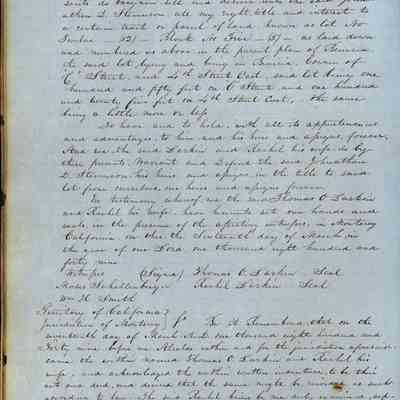 sents do bargain sell and deliver unto the said Jona-
athan D. Stevenson, all my right, title and interest to
a certain tract or parcel of land, known as Lot No
Twelve - 12 - Block No Five - 5 - as laid down
and numbered as above in the present plan of Benicia,
the said lot, lying and being in Benicia, Corner of
"C" Street, and 4th Street East, said lot being one
hundred and fifty feet on C Street and one hundred
and twenty five feet on 4th Street East, the same
being a little more or less
To have and to hold, with all its appurtenances
and advantages, to him and his heirs and assigns forever,
And we, the said Larkin and Rachel his wife do by
these presents, Warrant and Defend the said Jonathan
D. Stevenson, his heirs and assigns, in the title to said
lot from ourselves, our heirs and assigns forever
In testimony whereof, we the said Thomas O. Larkin
and Rachel his wife, have hereunto set our hands and
seals, in the presence of the attesting witnesses, in Monterey
California, on this the Sixteenth day of March, in
the year of our Lord one thousand eight hundred and
forty nine
Witnesses (Signed) Thomas O. Larkin Seal
Moses Schallenberger Rachel Larkin Seal
Wm H. Smith
Territory of California
Jurisdiction of Monterey Be it Remembered, that on the
seventeenth day of March A.D. one thousand eight hundred and
Forty nine before me Alcalde within and for the jurisdiction aforesaid
came the within named Thomas O. Larkin and Rachel his
wife, and acknowledged the within written indenture, to be their
act and deed, and desired that the same might be recorded as such
according to law. The said Rachel being by me privately examined, sep-